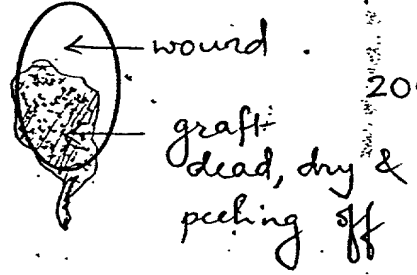 wound .
20
graft
dead, dry &
peeling off